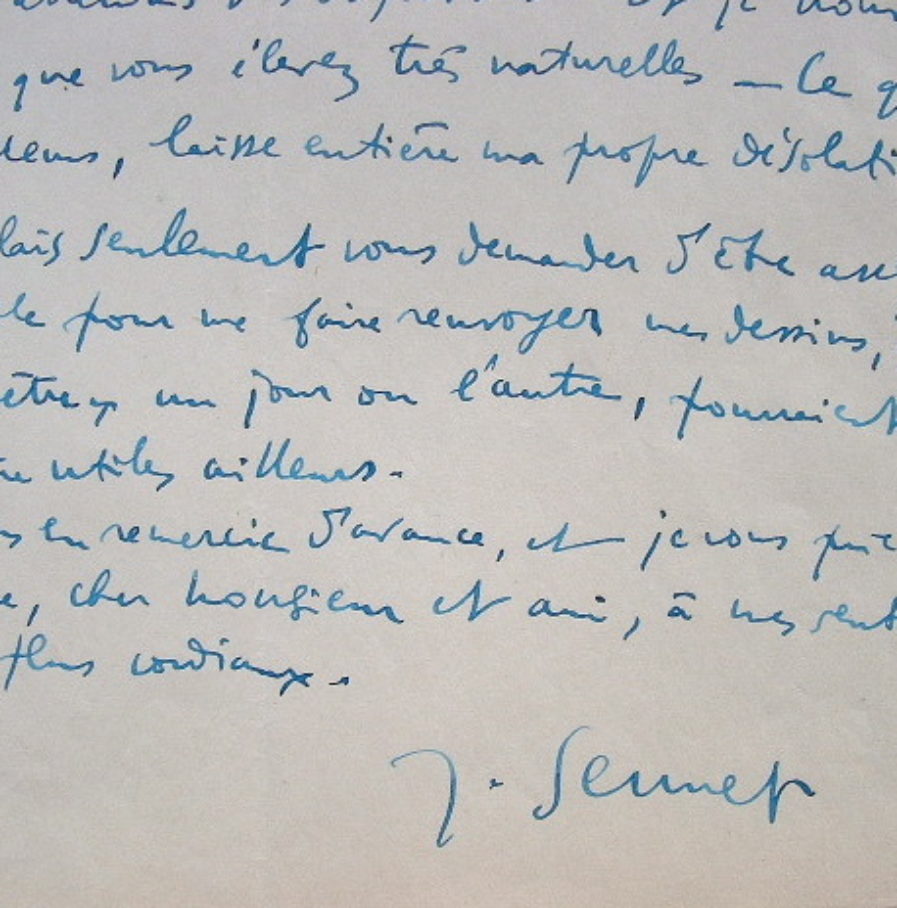 que vous élevez très naturelles — Ce q
laisse entière ma propre désolati
lais seulement vous demander d'être asse
le pour me faire renvoyer mes dessins,
un jour ou l'autre, pourraient
utiles ailleurs.
s en remercie d'avance, et je vous prie
e, cher Monsieur et ami, à mes sent
plus cordiaux.
J. Sennep